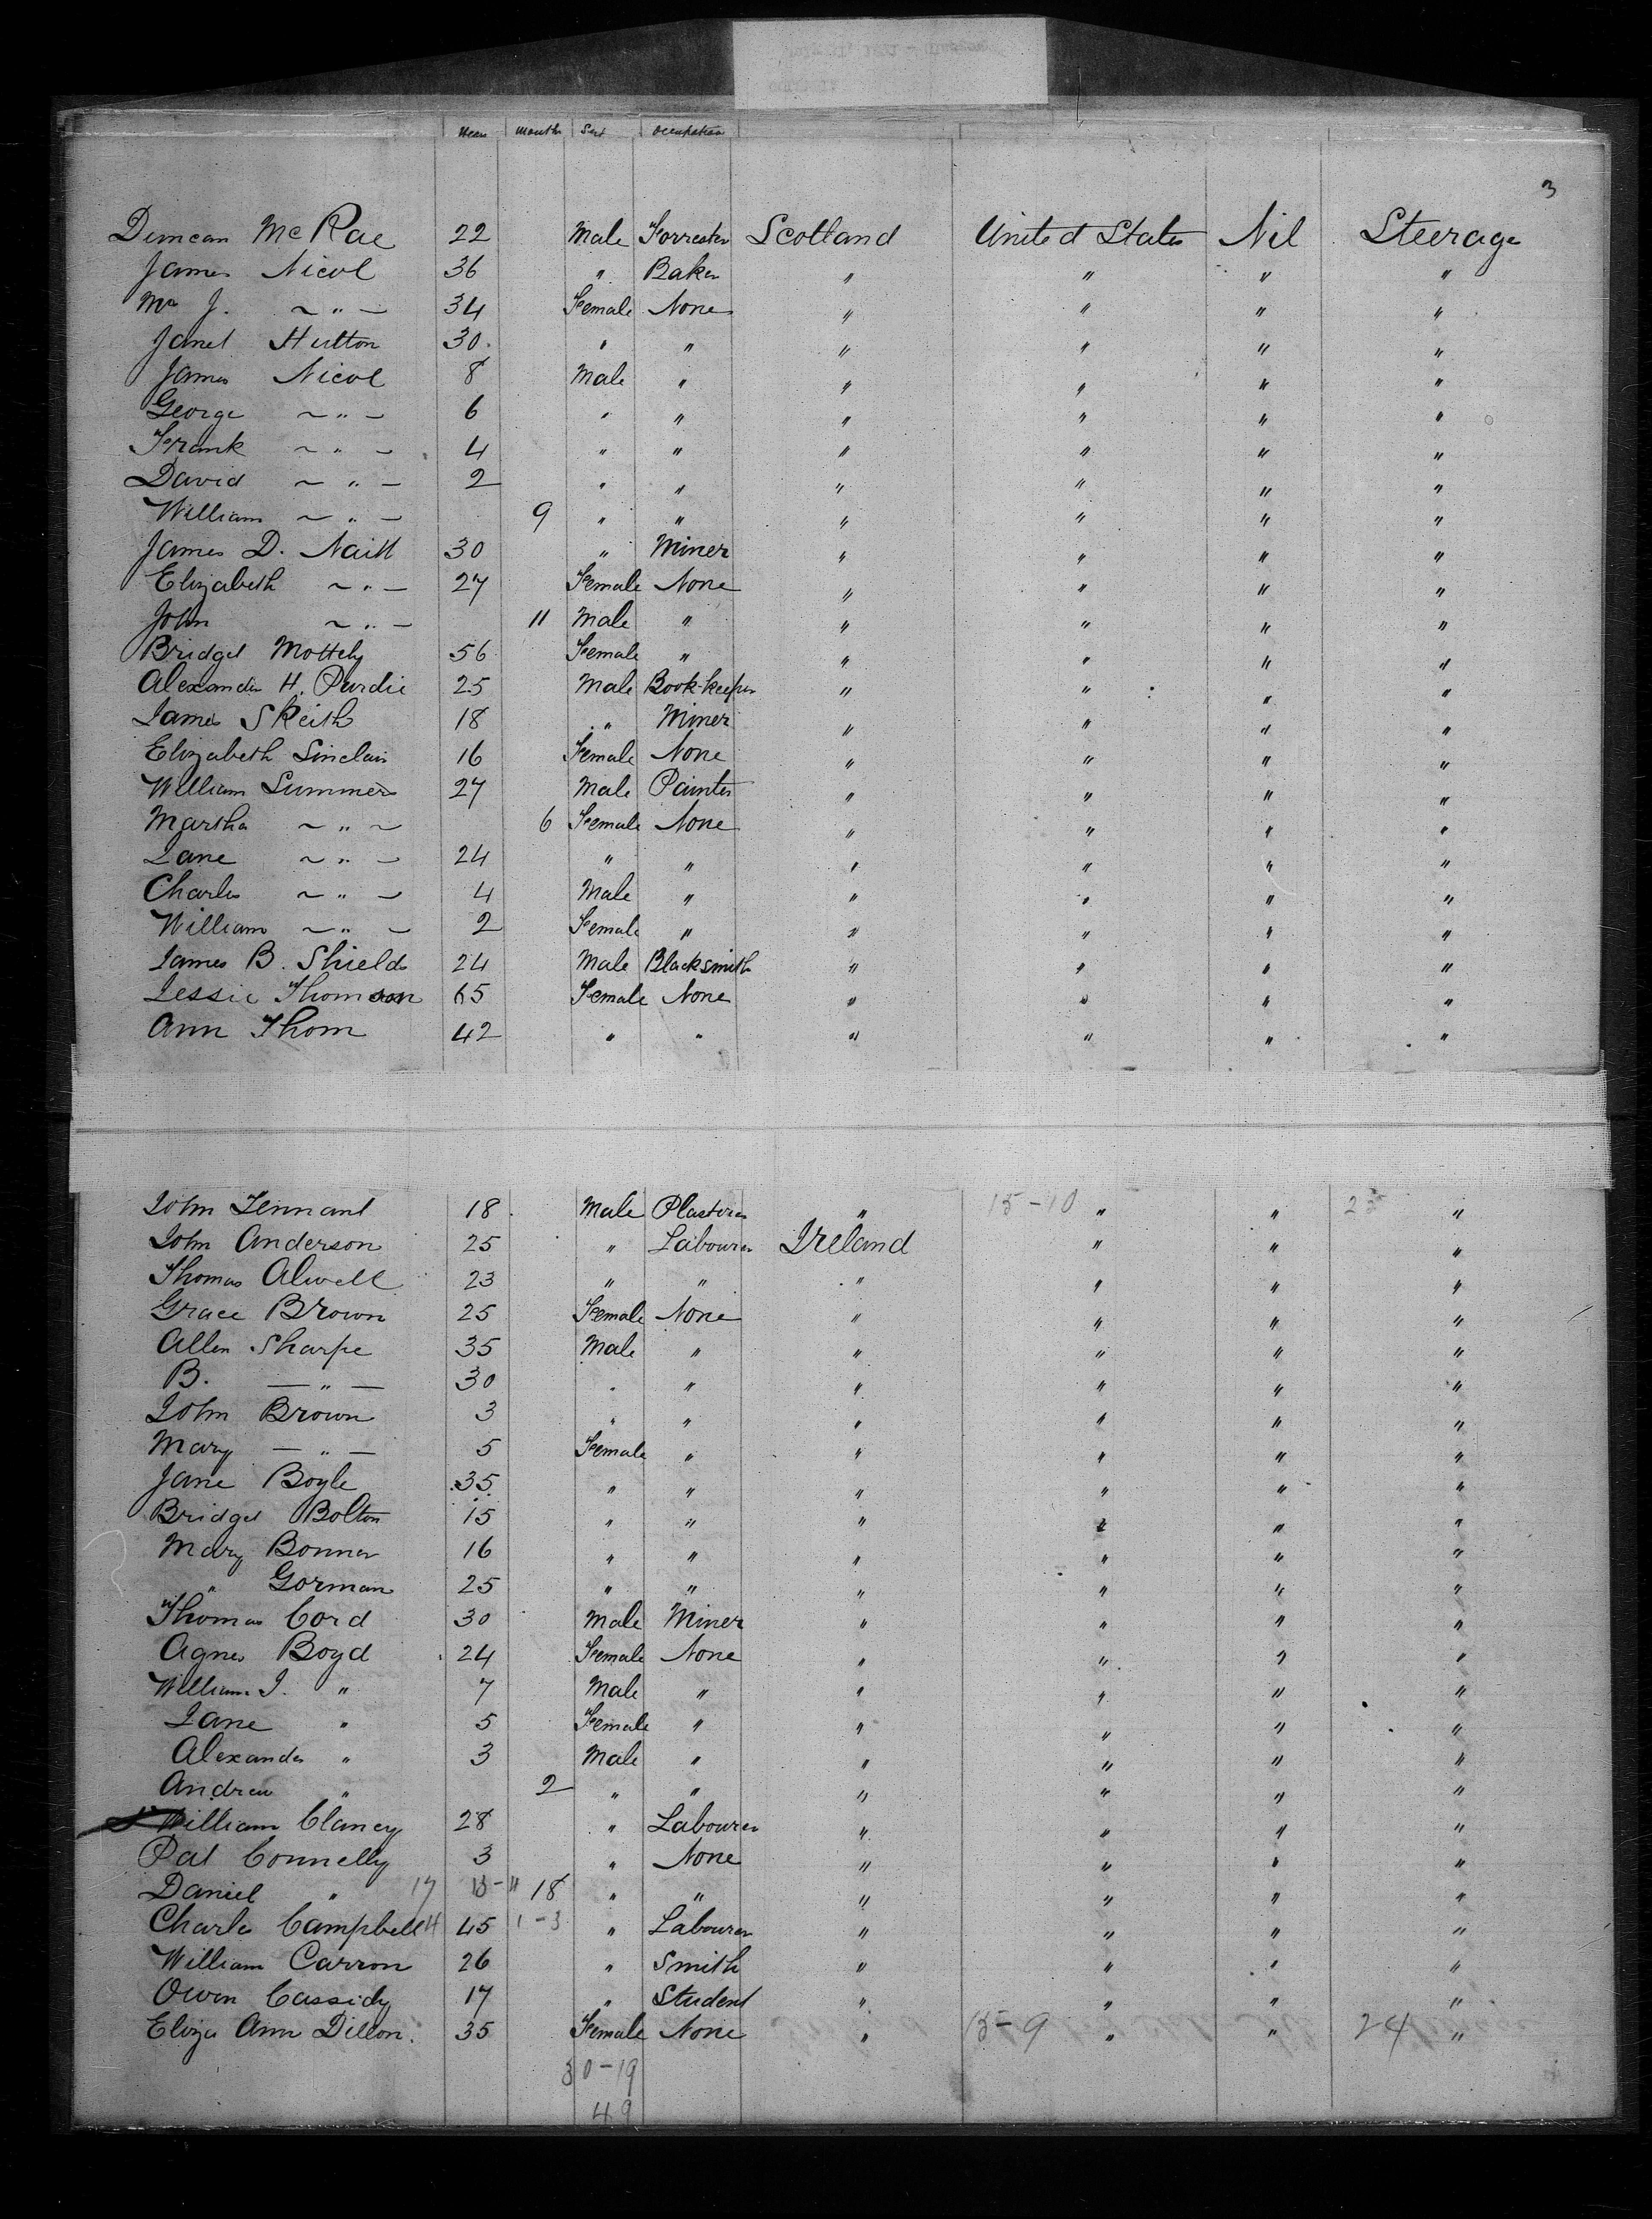 Years Months Sex Occupation
3
Duncan McRae 22 Male Forrester Scotland United States Nil Steerage
James Nicol 36 " Baker " " " "
Mrs J. ~ " ~ 34 Female None " " " "
Janet Hutton 30 " " " " " "
James Nicol 8 Male " " " " "
George ~ " ~ 6 " " " " " "
Frank ~ " ~ 4 " " " " " "
David ~ " ~ 2 " " " " " "
William ~ " ~ 9 " " " " " "
James D. Naitt 30 " Miner " " " "
Elizabeth ~ " ~ 27 Female None " " " "
John ~ " ~ 11 Male " " " " "
Bridget Mottely 56 Female " " " " "
Alexander H. Purdie 25 Male Book-keeper " " " "
James Skeith 18 " Miner " " " "
Elizabeth Sinclair 16 Female None " " " "
William Summers 27 Male Painter " " " "
Martha ~ " ~ 6 Female None " " " "
Jane ~ " ~ 24 " " " " " "
Charles ~ " ~ 4 Male " " " " "
William ~ " ~ 2 Female " " " " "
James B. Shields 24 Male Blacksmith " " " "
Jessie Thomson 65 Female None " " " "
Ann Thom 42 " " " " " "
John Tennant 18 Male Plasterer " 15-10 " " 25 "
John Anderson 25 " Labourer Ireland " " "
Thomas Alwell 23 " " " " " "
Grace Brown 25 Female None " " " "
Allen Sharpe 35 Male " " " " "
B. — " — 30 " " " " " "
John Brown 3 " " " " " "
Mary — " — 5 Female " " " " "
Jane Boyle 35 " " " " " "
Bridget Bolton 15 " " " " " "
Mary Bonner 16 " " " " " "
" Gorman 25 " " " " " "
Thomas Cord 30 Male Miner " " " "
Agnes Boyd 24 Female None " " " "
William J. " 7 Male " " " " "
Jane " 5 Female " " " " "
Alexander " 3 Male " " " " "
Andrew " 2 " " " " " "
William Clancy 28 " Labourer " " " "
Pat Connelly 3 " None " " " "
Daniel " 17 13-11 18 " " " " " "
Charles Campbell 4 45 1-3 " Labourer " " " "
William Carron 26 " Smith " " " "
Owen Cassidy 17 " Student " " " "
Eliza Ann Dillon 35 Female None " 15-9 " " 24 "
30-19
49